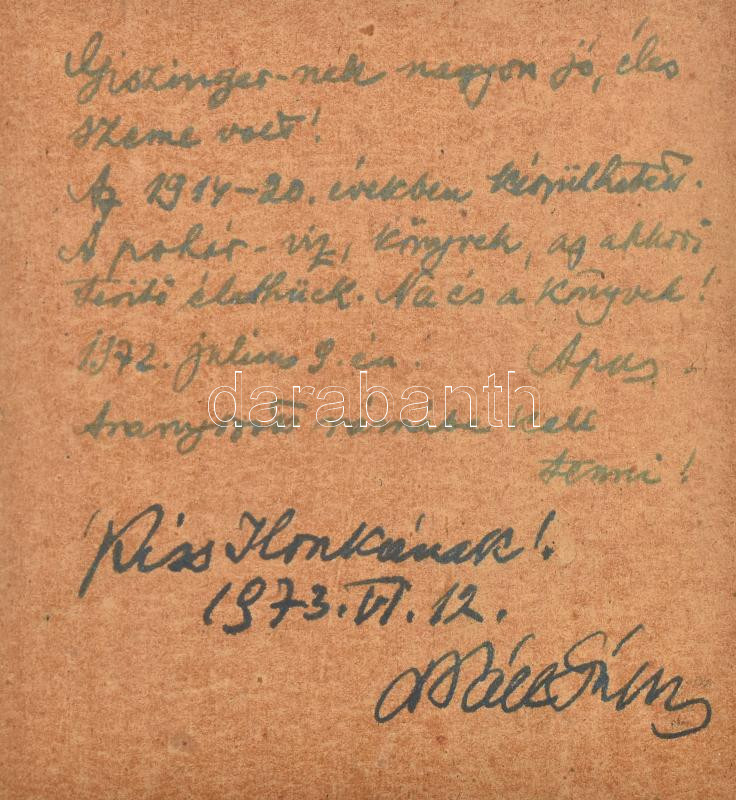 Giszinger-nek nagyon jó, éles
szeme volt!
Az 1914-20. években készülhetett.
A pohár-víz, könyvek, az akkori
terítő élethűek. Na és a könyvek!
1972. július 9.-én. Apus.
darabanth
kell
tenni!
Kiss Ilonkának!
1973. VI. 12.